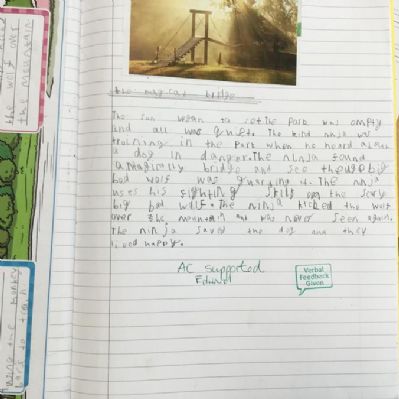 the magical bridge
The sun began to set the Park was empty
and all was quiet. The kind ninja was
training in the Park when he heard
a dog in danger. The ninja found
a magically bridge and see the big
bad wolf was guarding it. The ninja
uses his fighting skills on the scary
big bad wolf. The ninja kicked the wolf
over the mountain and was never seen again.
The ninja saved the dog and they
lived happy.
AC supported
Verbal
Feedback
Given
the wolf over
the mountain
using the monkey
bars to train